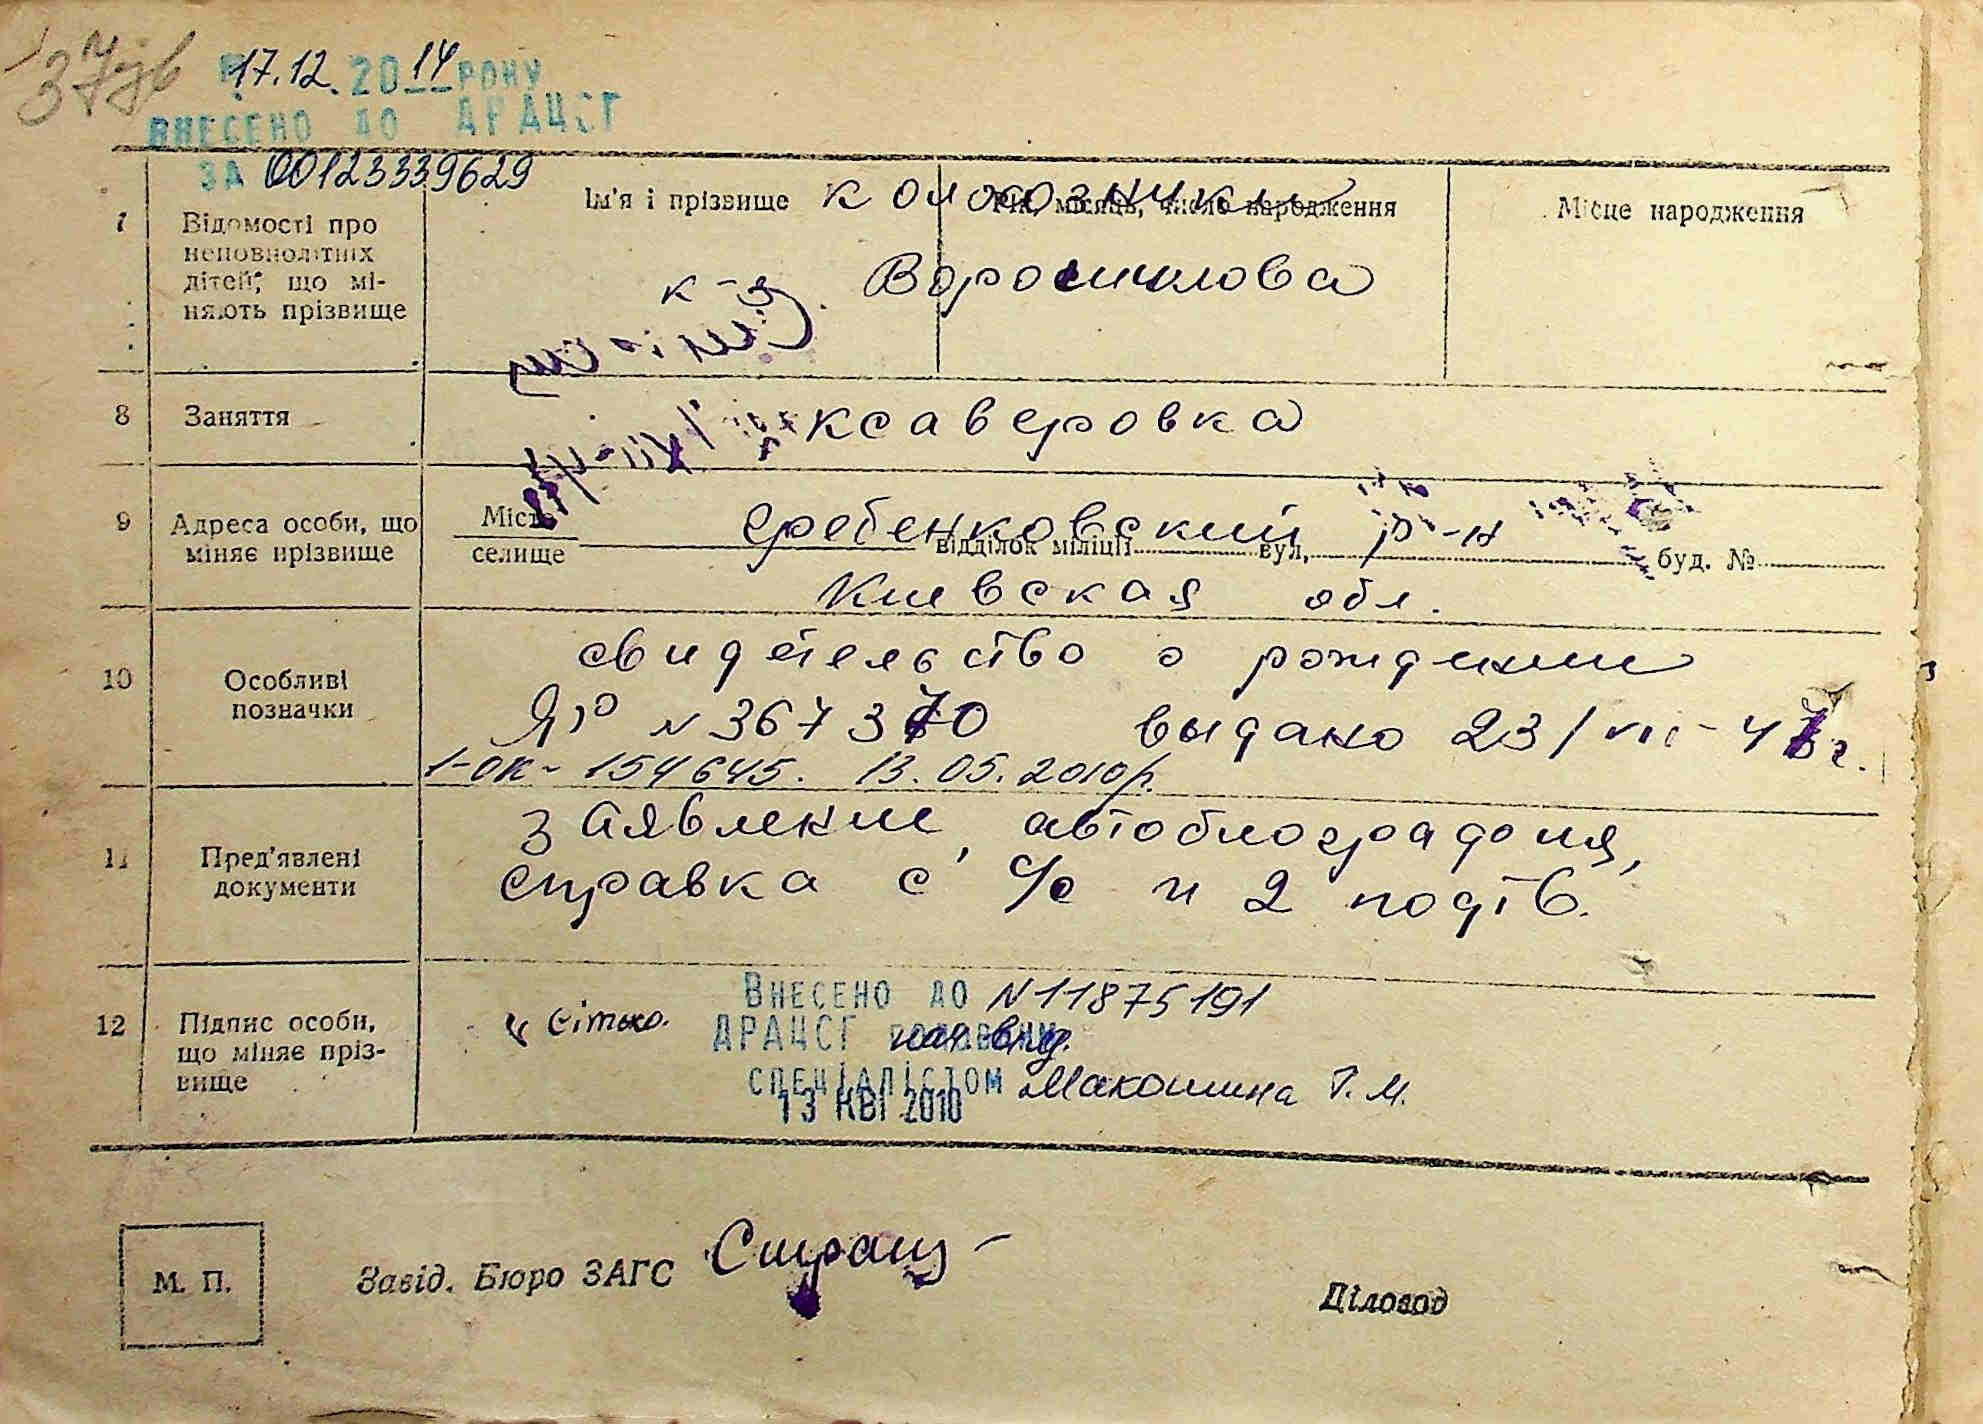 17.12.2014 РОКУ
ВНЕСЕНО ДО ДРАЦСГ
ЗА 00123339629
7 Відомості про неповнолітніх дітей, що міняють прізвище
Ім'я і прізвище
Рік, місяць, число народження
Місце народження
колхозники
к-з. Ворошилова
8 Заняття
Ксаверовка
9 Адреса особи, що міняє прізвище
Місто
селище
відділок міліції
вул.
буд. №
Гребенковский р-н
Киевская обл.
10 Особливі позначки
свидетельство о рождении
ЯР № 367370 выдано 23/VII-47г.
I-ОК- 154645. 13.05.2010р.
11 Пред'явлені документи
заявление, автобиография,
справка с с/с и 2 подтв.
12 Підпис особи, що міняє прізвище
Сітько.
ВНЕСЕНО ДО N 11875191
ДРАЦСГ нач. від.
СПЕЦІАЛІСТОМ Макошина Т. М.
13 КВІ 2010
М. П.
Завід. Бюро ЗАГС
Діловод